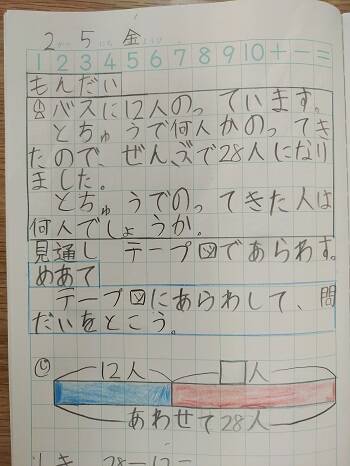 2 5 金
1 2 3 4 5 6 7 8 9 10 + − =
もんだい
バスに12人のっています。
とちゅうで何人かのってき
たので、ぜんぶで28人になり
ました。
とちゅうでのってきた人は
何人でしょうか。
見通し テープ図であらわす。
めあて
テープ図にあらわして、問
だいをとこう。
12人 □人
あわせて28人
しき 28−12=